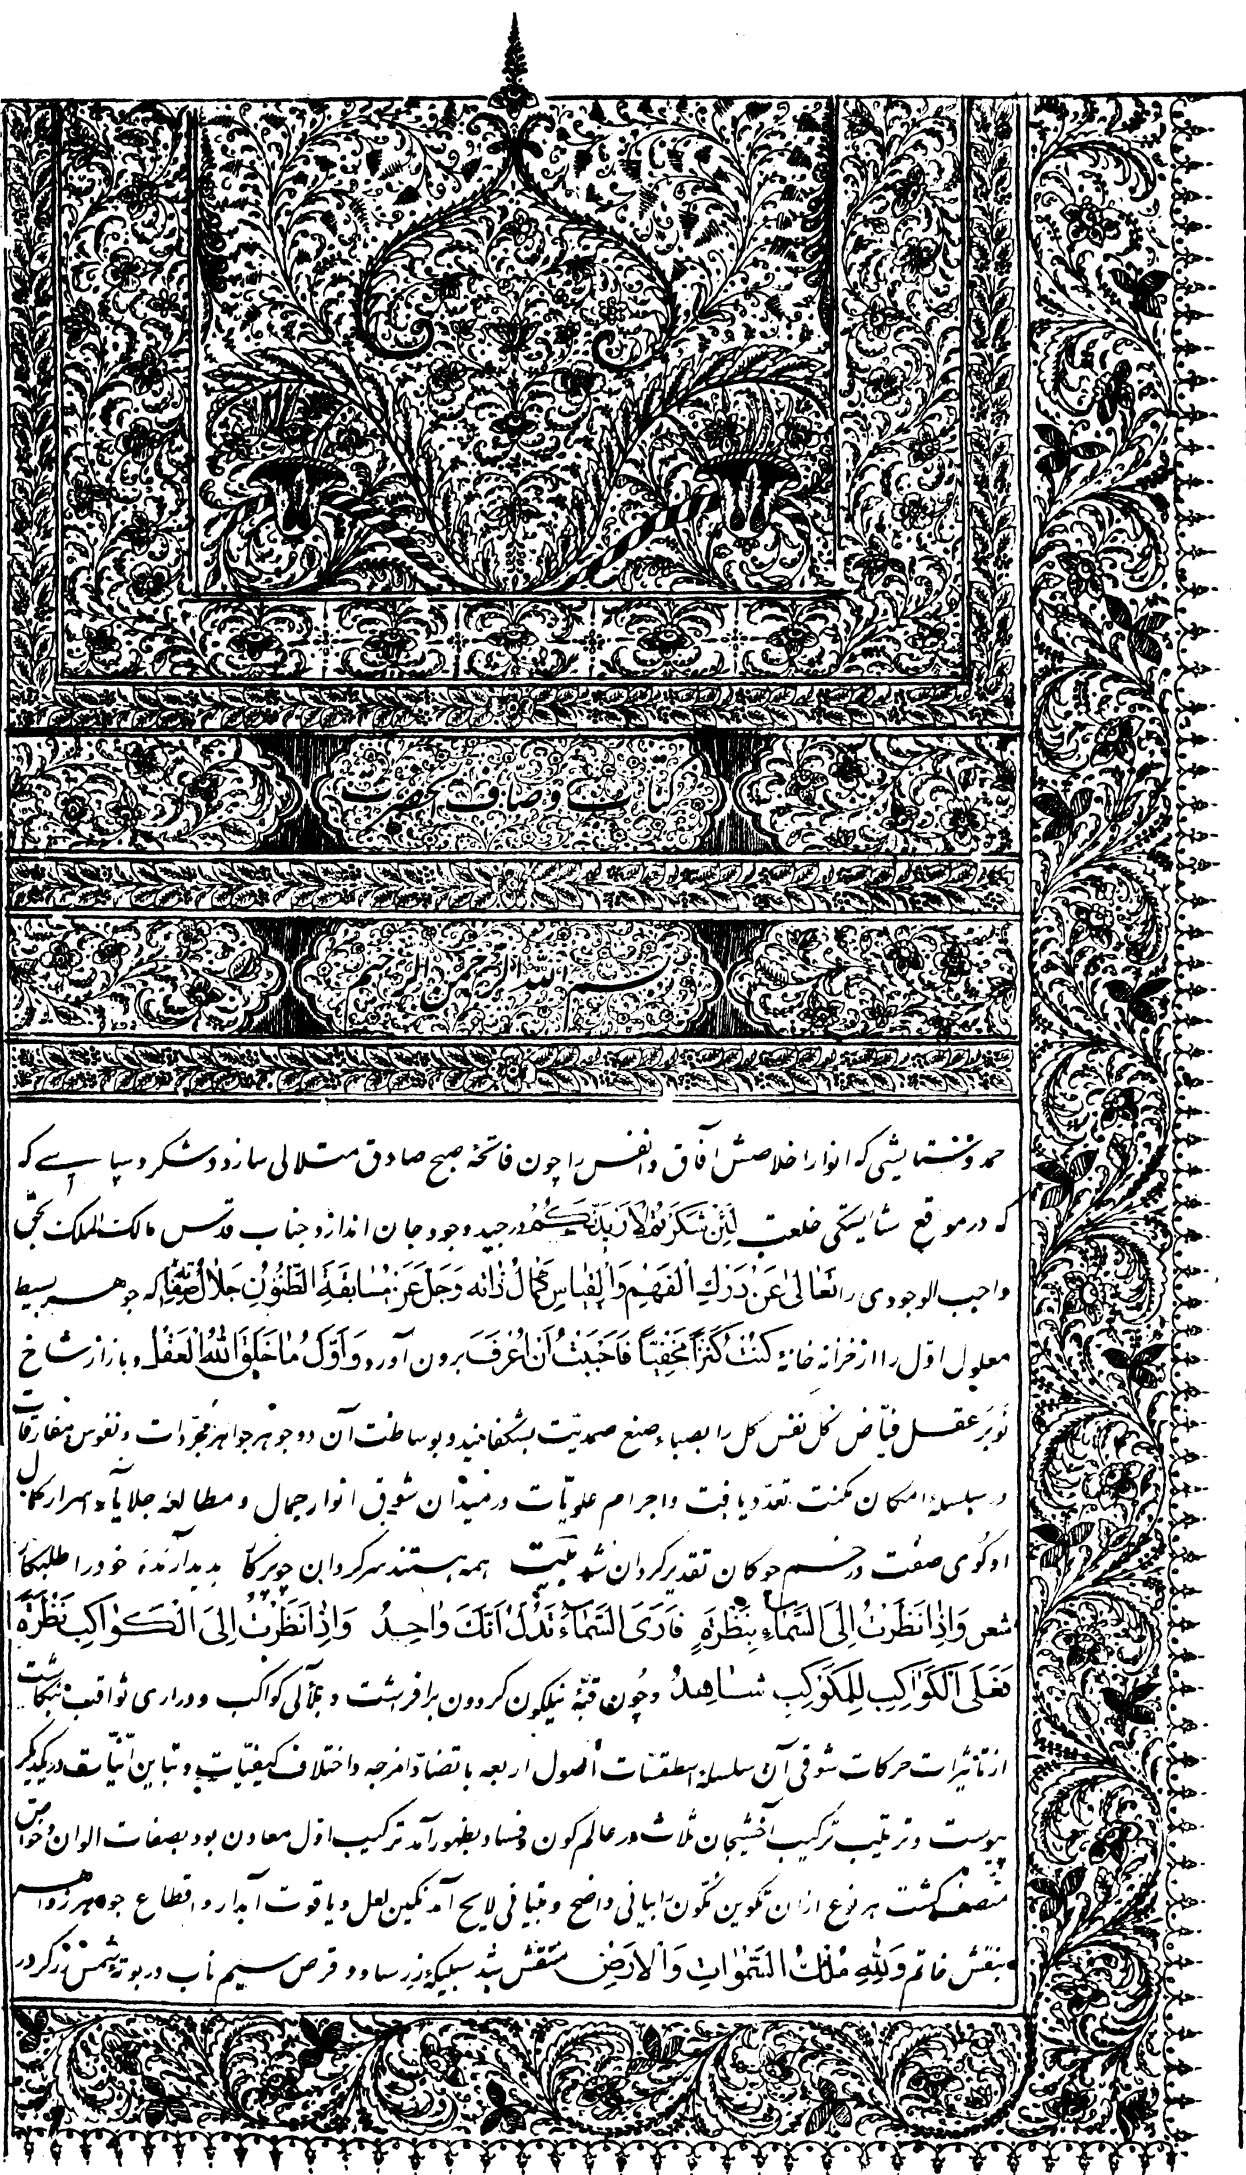 کتاب وصاف بحضرت
بسم الله الرحمن الرحیم
حمد و ستایشی که انوار اخلاصش آفاق و انفس را چون فاتحهٔ صبح صادق متلالی سازد و شکر و سپاسی که
که در موقع شایستگی خلعت لَئِنْ شَكَرْتُمْ لَأَزِيدَنَّكُمْ در جید وجود جان اندازد جناب قدس مالک الملک بحق
واجب الوجودی را تَعَالىٰ عَنْ دَرْكِ الْفَهْمِ وَالْقِيَاسِ كَمَالُ ذَاتِهِ وَجَلَّ عَنْ مُسَابَقَةِ الظُّنُونِ جَلَالُ صِفَاتِهِ که جوهر بسیط
معلول اوّل را از خزانه خانهٔ كُنْتُ كَنْزاً مَخْفِيّاً فَاَحْبَبْتُ أَنْ اُعْرَفَ برون آورد وَ أَوَّلُ مَا خَلَقَ اللهُ الْعَقْلُ و باز از شاخ
نوبر عقل فیّاض گل نفس کل را بصباء صنع صمدیّت بشکفانید و بوساطت آن دو جوهر جواهر مجرّدات و نفوس مفارقات
در سلسلهٔ امکان مکنت تعدّد یافت و اجرام علویّات در میدان شوق انوار جمال و مطالعه جلایای اسرار کمال
او گوی صفت در خم چوگان تقدیر گردان شد بیت همه هستند سرگردان چو پرگار پدیدآرندهٔ خود را طلبکار
شعر وَاِذَا نَظَرْتُ اِلَى السَّمَاءِ بِنَظْرَةٍ فَارَى السَّمَاءَ تَدُلُّ اَنَّكَ وَاحِدُ وَاِذَا نَظَرْتُ اِلَى الْكَوَاكِبِ نَظْرَةً
فَعَلَى الْكَوَاكِبِ لِلْمُكَوْكِبِ شَاهِدُ و چون قبّهٔ نیلگون گردون برافراشت و بلآلی کواکب و دراری ثواقب بنگاشت
از تاثیرات حرکات شوقی آن سلسلهٔ اسطقسّات اصول اربعه با تضادّ امزجه و اختلاف کیفیّات و تباین انّیّات در یکدیگر
پیوست و ترتیب ترکیب آخشیجان ثلاث در عالم کون و فساد بظهور آمد ترکیب اوّل معادن بود بصفات الوان و خواصّ
متّصف گشت هر نوع از ان تکوین مکوّن را بیانی واضح و تبیانی لایح آمد نگین لعل و یاقوت آبدار و اقطاع جواهر زواهر
بنقش خاتم وَلِلّٰهِ مُلْكُ السَّمٰوَاتِ وَالْاَرْضِ منقّش شد سبیکهٔ زر ساو و قرص سیم ناب در بوتهٔ شمس زرگر در